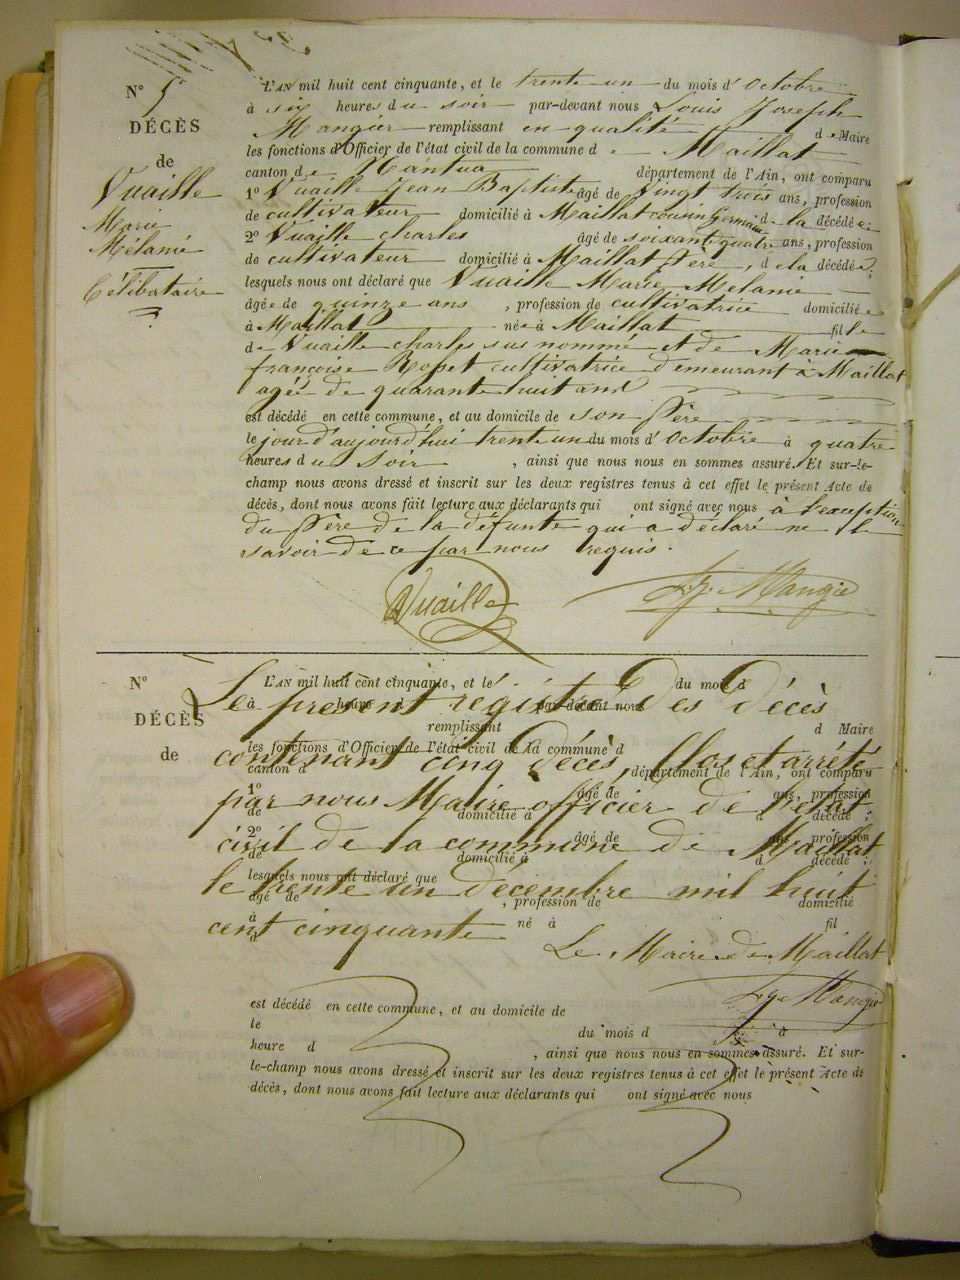 N° 5
DÉCÈS
de
Vuaille
Marie
Mélanie
Célibataire
L'AN mil huit cent cinquante, et le trente un du mois d'Octobre
à six heures du soir par-devant nous Louis Joseph
Mangier remplissant en qualité de Maire
les fonctions d'Officier de l'état civil de la commune de Maillat
canton de Nantua département de l'Ain, ont comparu
1° Vuaille Jean Baptiste âgé de vingt trois ans, profession
de cultivateur domicilié à Maillat cousin Germain de la décédée;
2° Vuaille charles âgé de soixante quatre ans, profession
de cultivateur domicilié à Maillat père, de la décédée;
lesquels nous ont déclaré que Vuaille Marie Mélanie
âgée de quinze ans, profession de cultivatrice domiciliée
à Maillat née à Maillat fille
de Vuaille charles sus nommé et de Marie
françoise Rosset cultivatrice demeurant à Maillat
agée de quarante huit ans
est décédé en cette commune, et au domicile de son père
le jour d'aujourd'hui trente un du mois d'Octobre à quatre
heures du soir, ainsi que nous nous en sommes assuré. Et sur-le-
champ nous avons dressé et inscrit sur les deux registres tenus à cet effet le présent Acte de
décès, dont nous avons fait lecture aux déclarants qui ont signé avec nous à l'exeption
du père de la défunte qui a déclaré ne le
savoir de ce par nous requis.
Vuaille Mangie
N°
DÉCÈS
de
L'AN mil huit cent cinquante, et le du mois d
à heure d par-devant nous
Le present régistre des Décès
remplissant d Maire
les fonctions d'Officier de l'état civil de la commune d
contenant cinq décès, Clos et arrété
canton d département de l'Ain, ont comparu
1° âgé de ans, profession
par nous Maire officier de l'état
de domicilié à d décédé;
2° âgé de ans, profession
civil de la commune de Maillat
de domicilié à d décédé;
lesquels nous ont déclaré que
le trente un décembre mil huit
âgé de , profession de domicilié
à né à fil
cent cinquante
d
Le Maire de Maillat
Mangie
est décédé en cette commune, et au domicile de
le du mois d à
heure d , ainsi que nous nous en sommes assuré. Et sur-
le-champ nous avons dressé et inscrit sur les deux registres tenus à cet effet le présent Acte de
décès, dont nous avons fait lecture aux déclarants qui ont signé avec nous